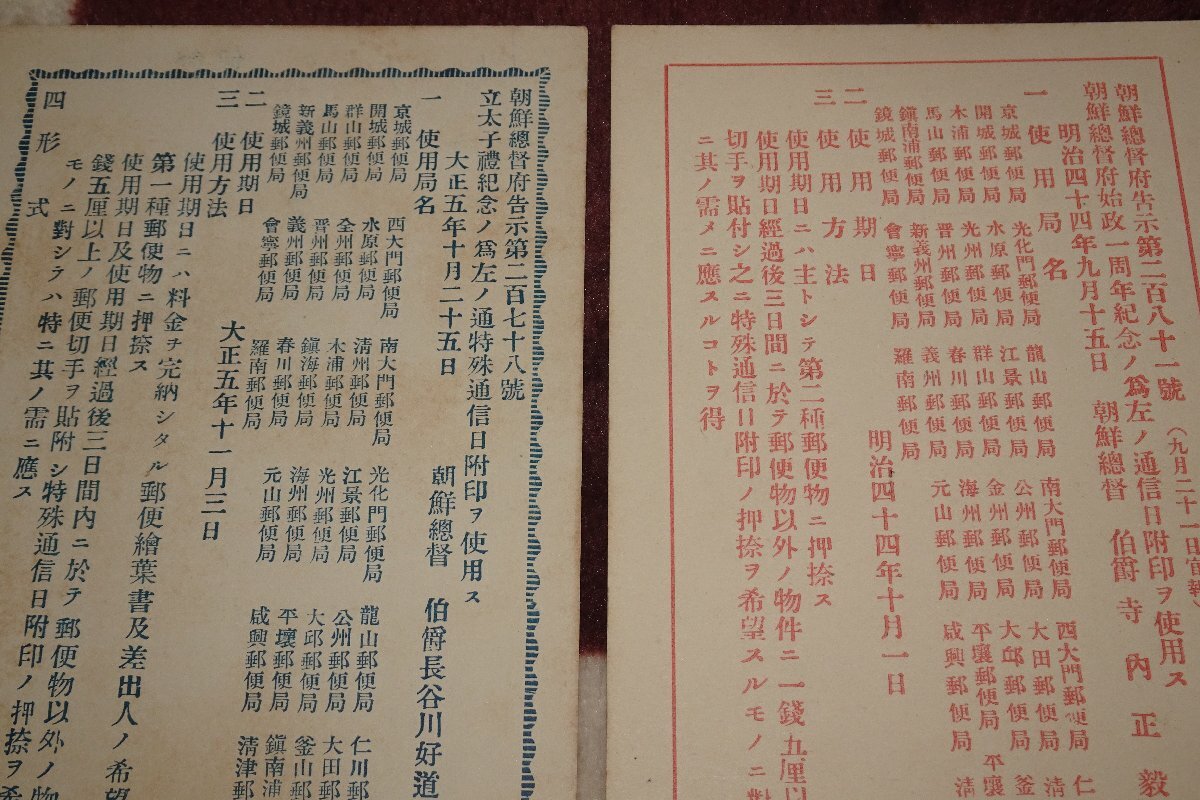 朝鮮總督府告示第二百八十一號 (九月二十一日官報)
朝鮮總督府始政一周年紀念ノ爲左ノ通信日附印ヲ使用ス
明治四十四年九月十五日 朝鮮總督 伯爵 寺內正毅
一 使用局名
京城郵便局 光化門郵便局 龍山郵便局 南大門郵便局 西大門郵便局 仁
開城郵便局 水原郵便局 江景郵便局 公州郵便局 大田郵便局 清
木浦郵便局 光州郵便局 群山郵便局 金州郵便局 大邱郵便局 釜
馬山郵便局 晋州郵便局 春川郵便局 海州郵便局 平壤郵便局 平壤
鎭南浦郵便局 新義州郵便局 義州郵便局 元山郵便局 咸興郵便局 清
鏡城郵便局 會寧郵便局 羅南郵便局
二 使用期日 明治四十四年十月一日
三 使用方法
使用期日ニハ主トシテ第二種郵便物ニ押捺ス
使用期日經過後三日間ニ於テ郵便物以外ノ物件ニ一錢五厘以
切手ヲ貼付シ之ニ特殊通信日附印ノ押捺ヲ希望スルモノニ對
ニ其ノ需メニ應スルコトヲ得
朝鮮總督府告示第二百七十八號
立太子禮紀念ノ爲左ノ通特殊通信日附印ヲ使用ス
大正五年十月二十五日 朝鮮總督 伯爵長谷川好道
一 使用局名
京城郵便局 西大門郵便局 南大門郵便局 光化門郵便局 龍山郵便局 仁川郵
開城郵便局 水原郵便局 清州郵便局 江景郵便局 公州郵便局 大田郵
群山郵便局 全州郵便局 木浦郵便局 光州郵便局 大邱郵便局 釜山郵
馬山郵便局 晋州郵便局 鎭海郵便局 海州郵便局 平壤郵便局 鎭南浦
新義州郵便局 義州郵便局 春川郵便局 元山郵便局 咸興郵便局 清津郵
鏡城郵便局 會寧郵便局 羅南郵便局
二 使用期日 大正五年十一月三日
三 使用方法
使用期日ニハ料金ヲ完納シタル郵便繪葉書及差出人ノ希望
第一種郵便物ニ押捺ス
使用期日及使用期日經過後三日間內ニ於テ郵便物以外ノ物
錢五厘以上ノ郵便切手ヲ貼附シ特殊通信日附印ノ押捺ヲ希
モノニ對シテハ特ニ其ノ需ニ應ス
四 形式